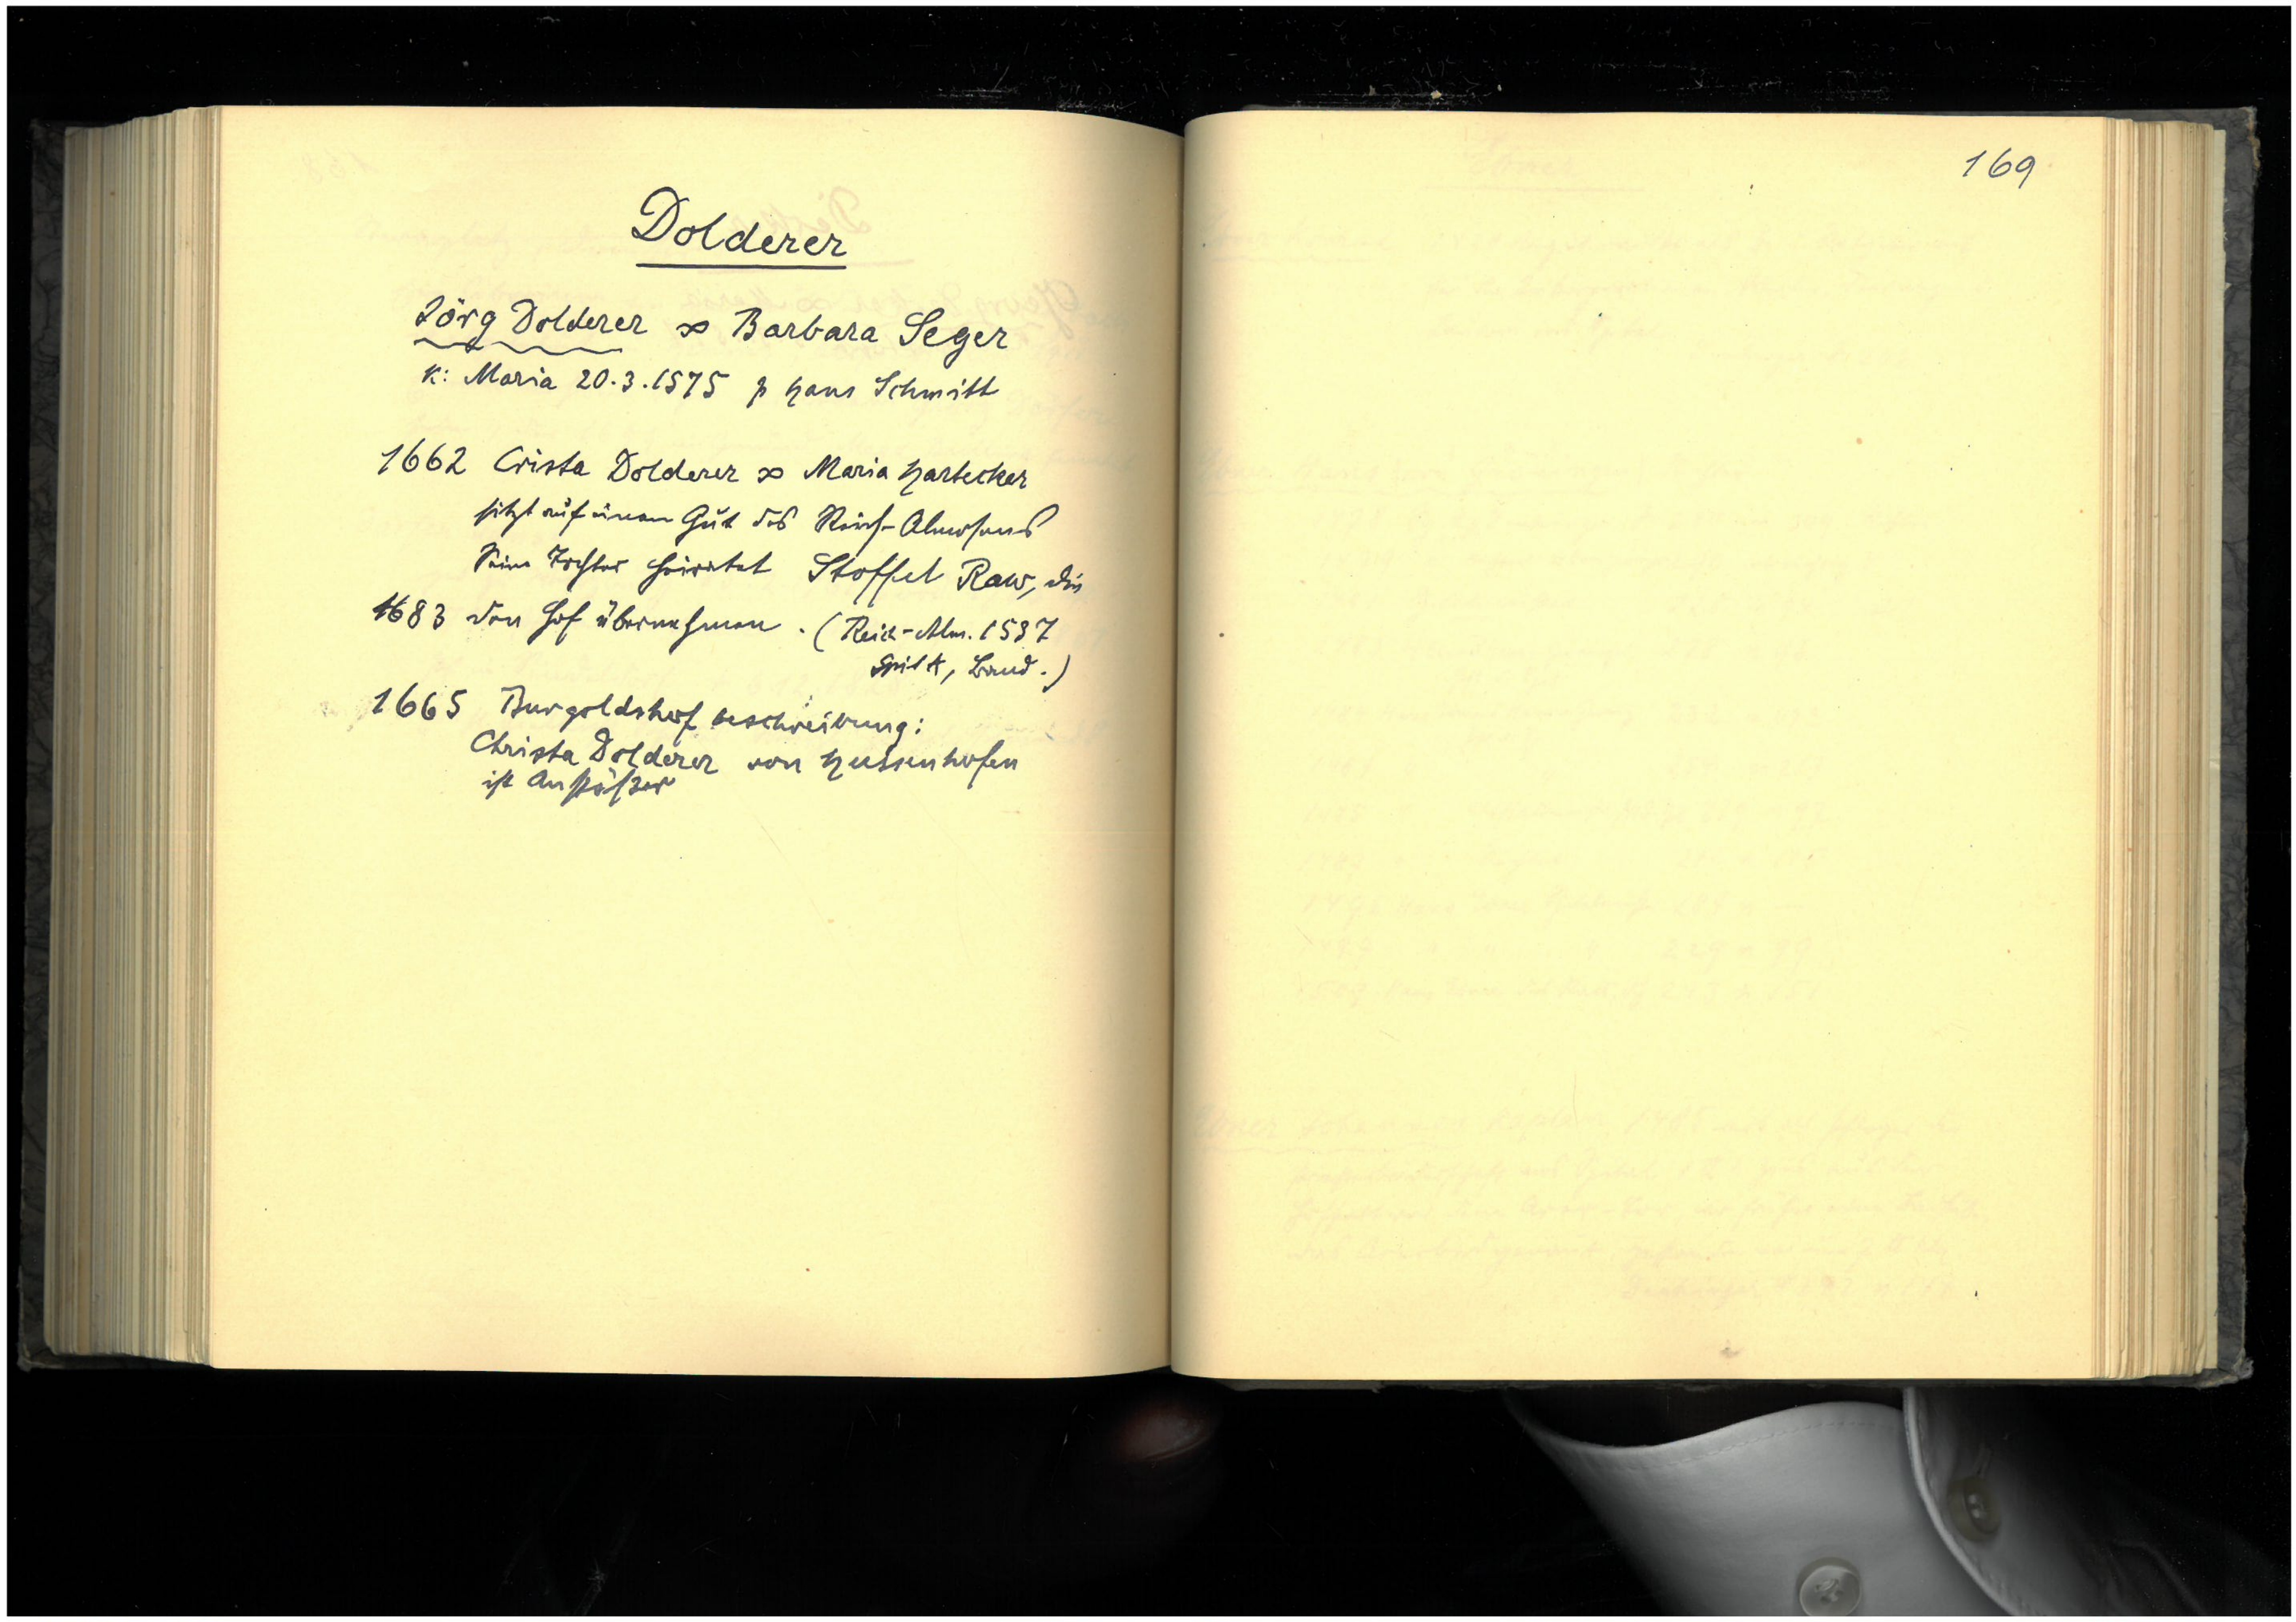 Dolderer
Jörg Dolderer ∞ Barbara Seger
K: Maria 20.3.1575 p Hans Schmitt
1662 Crista Dolderer ∞ Maria Hartecker
sitzt auf einem Gut des Reich-Almosens
Seine Tochter heiratet Stoffel Raw, die
1683 den Hof übernehmen. (Reich-Alm. 1537
SpitA, Band.)
1665 Burgoldshof beschreibung:
Christa Dolderer von Hussenhofen
ist Anstößer
169